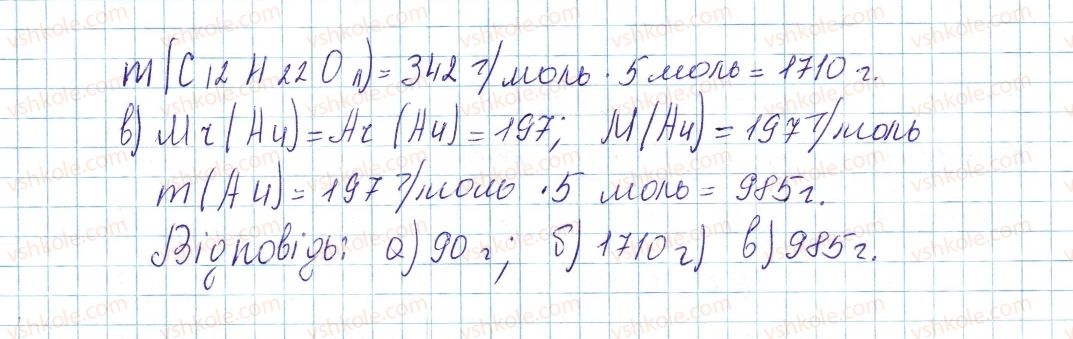 m(C12H22O11) = 342 г/моль · 5 моль = 1710 г.
в) Mr(Au) = Ar(Au) = 197; M(Au) = 197 г/моль
m(Au) = 197 г/моль · 5 моль = 985 г.
Відповідь: а) 90 г; б) 1710 г) в) 985 г.
vshkole.com